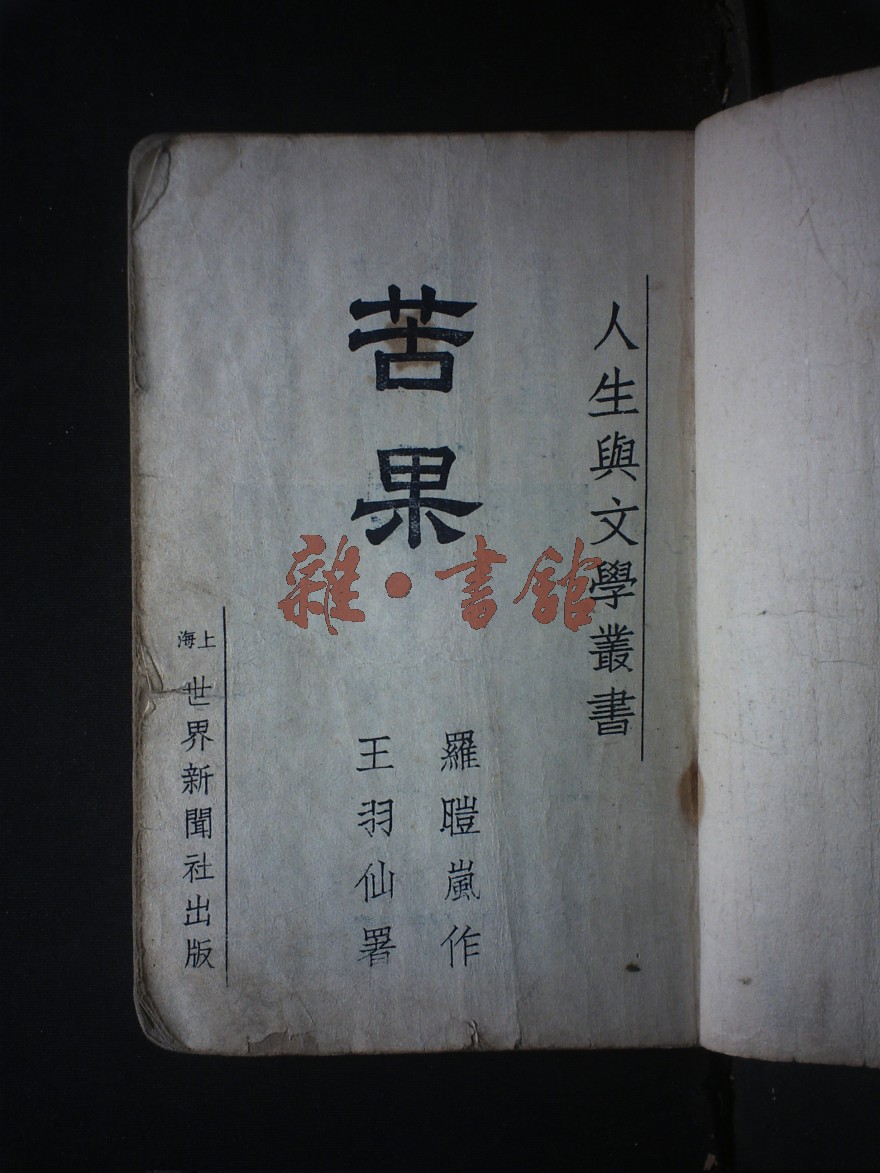 人生與文學叢書
苦果
羅暟嵐作
王羽仙署
上海
世界新聞社出版
雜·書館